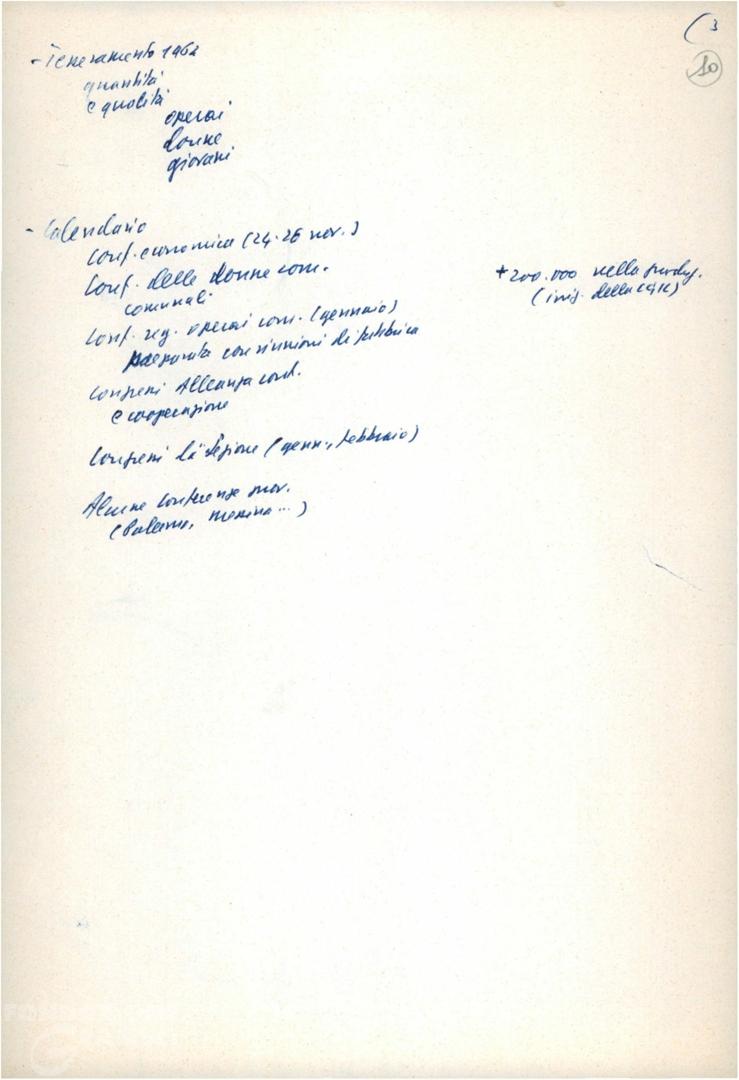 (3
10
- Tesseramento 1962
quantità
e qualità
operai
donne
giovani
- Calendario
Conf. economica (24-26 nov.)
Conf. delle donne com.
comunali
Conf. reg. operai com. (gennaio)
preparata con riunioni di fabbrica
Congressi Alleanza cont.
e cooperazione
Congressi di Sezione (genn., febbraio)
Alcune conferenze prov.
(Palermo, Messina...)
+ 200.000 nella
(iniz. della